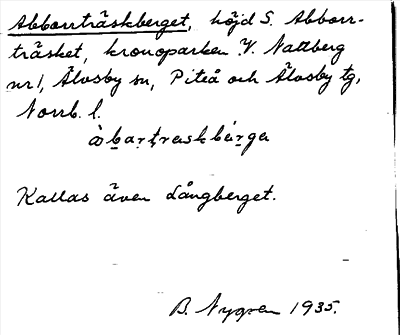 Abborrträskberget, höjd S. Abborr-
träsket, kronoparken V. Nattberg
nr 1, Älvsby sn, Piteå och Älvsby tg,
Norrb. l.
àbartraskbárga
Kallas även Långberget.
B. Nygren 1935.